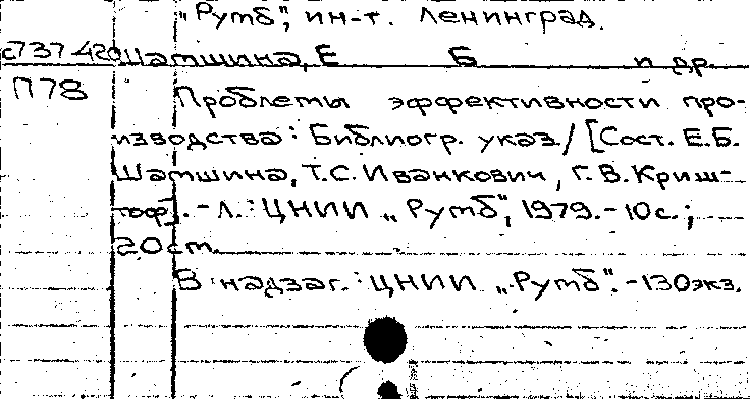 „Румб", ин-т. Ленинград.
с737420 Шатшина, Е Б и др.
П78 Проблемы эффективности про-
изводства: Библиогр. указ. / [Сост. Е.Б.
Шатшина, Т.С. Иванкович, Г.В. Криш-
тоф]. - Л.: ЦНИИ „Румб", 1979. - 10с.;
20см.
В надзаг.: ЦНИИ „Румб". - 130экз.